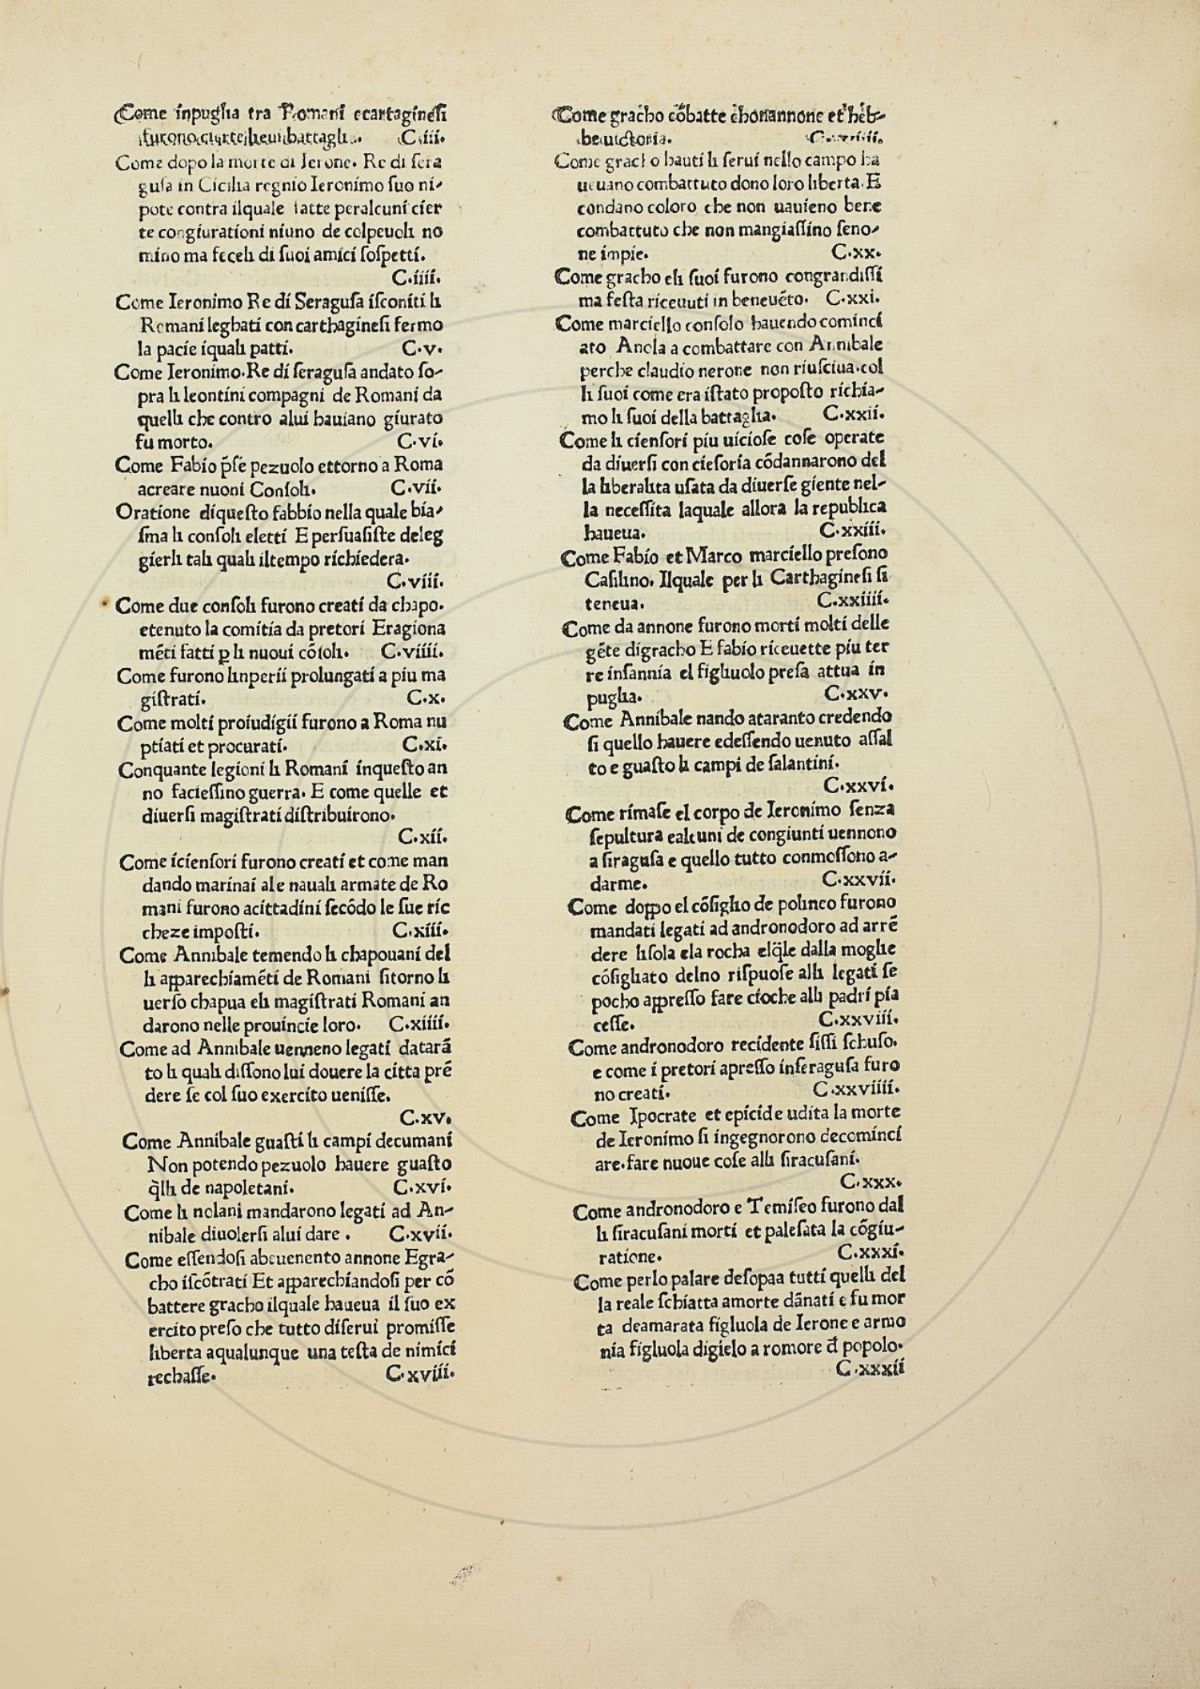 Come inpuglia tra Romani ecartagineſi
furono battagli.. C.iii.
Come dopo la morte di Ierone. Re di ſera
guſa in Cicilia regnio Ieronimo ſuo ni-
pote contra ilquale fatte peralcuni cier
te congiurationi niuno de colpeuoli no
mino ma feceli di ſuoi amici ſoſpetti.
C.iiii.
Come Ieronimo Re di Seraguſa iſconfiti li
Romani legbati con carthagineſi fermo
la pacie iquali patti. C.v.
Come Ieronimo.Re di ſeraguſa andato ſo-
pra li leontini compagni de Romani da
quelli che contro alui hauiano giurato
fu morto. C.vi.
Come Fabio p̄ſe pezuolo ettorno a Roma
acreare nuoni Conſoli. C.vii.
Oratione diqueſto fabbio nella quale bia-
ſma li conſoli eletti E perſuaſiſte deleg
gierli tali quali iltempo richiedera.
C.viii.
Come due conſoli furono creati da chapo.
etenuto la comitia da pretori Eragiona
mēti fatti ꝑ li nuoui cōſoli. C.viiii.
Come furono linperii prolungati a piu ma
giſtrati. C.x.
Come molti proiudigii furono a Roma nu
ptiati et procurati. C.xi.
Conquante legioni li Romani inqueſto an
no facieſſino guerra. E come quelle et
diuerſi magiſtrati diſtribuirono.
C.xii.
Come icienſori furono creati et come man
dando marinai ale nauali armate de Ro
mani furono acittadini ſecōdo le ſue ric
cheze impoſti. C.xiii.
Come Annibale temendo li chapouani del
li apparechiamēti de Romani ſitorno li
uerſo chapua eli magiſtrati Romani an
darono nelle prouincie loro. C.xiiii.
Come ad Annibale uenneno legati datarā
to li quali diſſono lui douere la citta prē
dere ſe col ſuo exercito ueniſſe.
C.xv.
Come Annibale guaſti li campi decumani
Non potendo pezuolo hauere guaſto
q̄lli de napoletani. C.xvi.
Come li nolani mandarono legati ad An-
nibale diuolerſi alui dare . C.xvii.
Come eſſendoſi abeuenento annone Egra-
cho iſcōtrati Et apparechiandoſi per cō
battere gracho ilquale haueua il ſuo ex
ercito preſo che tutto diſerui promiſſe
liberta aqualunque una teſta de nimici
rechaſſe. C.xviii.
Come gracho cōbatte
be uictoria. C.xviiii.
Come gracho hauti li ſerui nello campo ha
ueuano combattuto dono loro liberta.E
condano coloro che non uauieno bene
combattuto che non mangiaſſino ſeno-
ne impie. C.xx.
Come gracho eli ſuoi furono congrandiſſi
ma feſta riceuuti in beneuēto. C.xxi.
Come marciello conſolo hauendo cominci
ato Ancla a combattare con Annibale
perche claudio nerone non riuſciua.col
li ſuoi come era iſtato propoſto richia-
mo li ſuoi della battaglia. C.xxii.
Come li cienſori piu uicioſe coſe operate
da diuerſi con cieſoria cōdannarono del
la liberalita uſata da diuerſe giente nel-
la neceſſita laquale allora la republica
haueua. C.xxiii.
Come Fabio et Marco marciello preſono
Caſilino. Ilquale per li Carthagineſi ſi
teneua. C.xxiiii.
Come da annone furono morti molti delle
gēte digracho E fabio riceuette piu ter
re inſannia el figliuolo preſa attua in
puglia. C.xxv.
Come Annibale nando ataranto credendo
ſi quello hauere edeſſendo uenuto aſſal
to e guaſto li campi de ſalantini.
C.xxvi.
Come rimaſe el corpo de Ieronimo ſenza
ſepultura ealcuni de congiunti uennono
a ſiraguſa e quello tutto conmoſſono a-
darme. C.xxvii.
Come doppo el cōſiglio de polineo furono
mandati legati ad andronodoro ad arrē
dere liſola ela rocha elq̄le dalla moglie
cōſigliato delno riſpuoſe alli legati ſe
pocho appreſſo fare cioche alli padri pia
ceſſe. C.xxviii.
Come andronodoro recidente ſiſſi ſchuſo.
e come i pretori apreſſo inſeraguſa furo
no creati. C.xxviiii.
Come Ipocrate et epicide udita la morte
de Ieronimo ſi ingegnorono decominci
are.fare nuoue coſe alli ſiracuſani.
C.xxx.
Come andronodoro e Temiſeo furono dal
li ſiracuſani morti et paleſata la cōgiu-
ratione. C.xxxi.
Come perlo palare deſopaa tutti quelli del
la reale ſchiatta amorte dānati e fu mor
ta deamarata figluola de Ierone e armo
nia figluola digielo a romore đ popolo.
C.xxxii